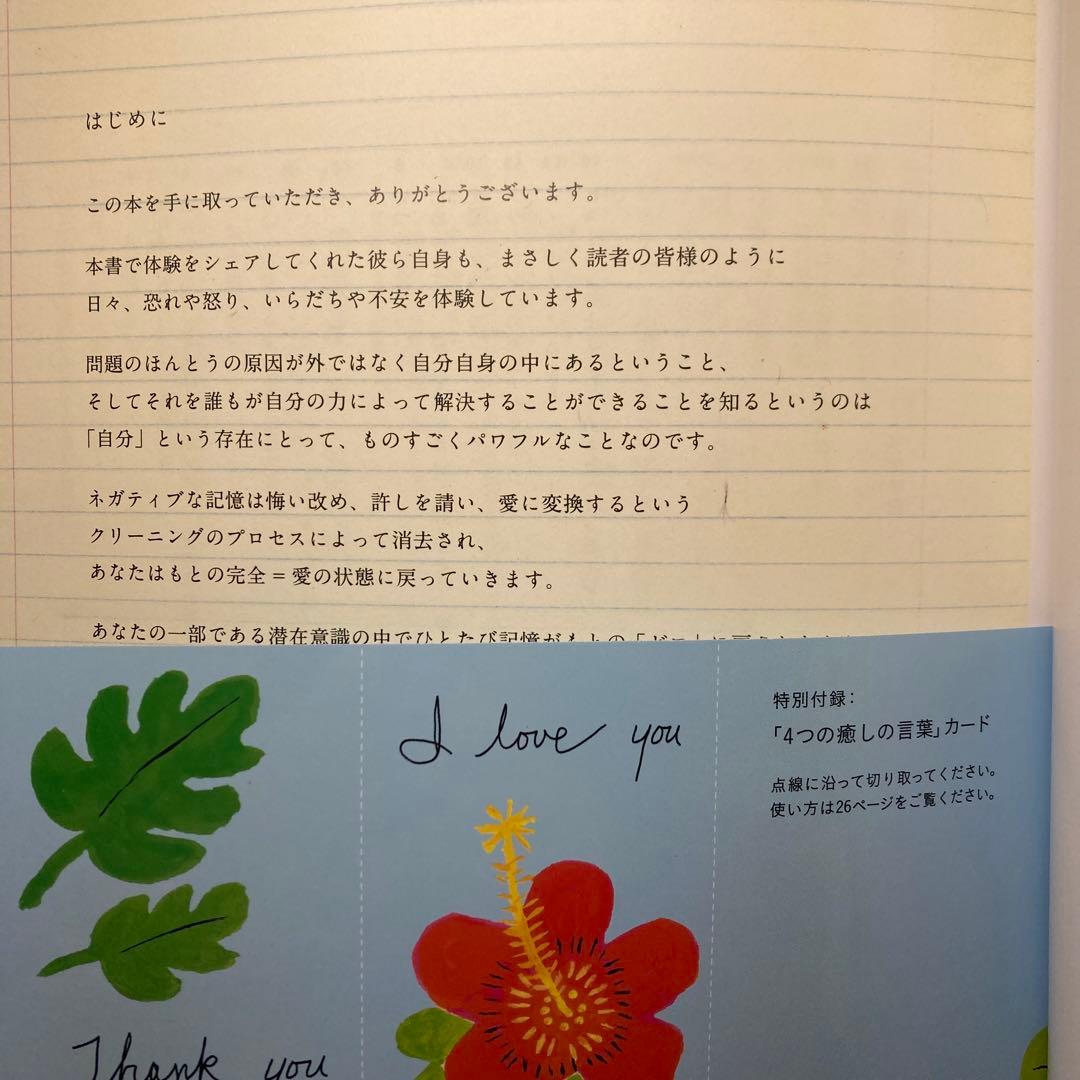 はじめに
この本を手に取っていただき、ありがとうございます。
本書で体験をシェアしてくれた彼ら自身も、まさしく読者の皆様のように
日々、恐れや怒り、いらだちや不安を体験しています。
問題のほんとうの原因が外ではなく自分自身の中にあるということ、
そしてそれを誰もが自分の力によって解決することができることを知るというのは
「自分」という存在にとって、ものすごくパワフルなことなのです。
ネガティブな記憶は悔い改め、許しを請い、愛に変換するという
クリーニングのプロセスによって消去され、
あなたはもとの完全＝愛の状態に戻っていきます。
あなたの一部である潜在意識の中でひとたび記憶がもとの
I love you
Thank you
特別付録：
「4つの癒しの言葉」カード
点線に沿って切り取ってください。
使い方は26ページをご覧ください。